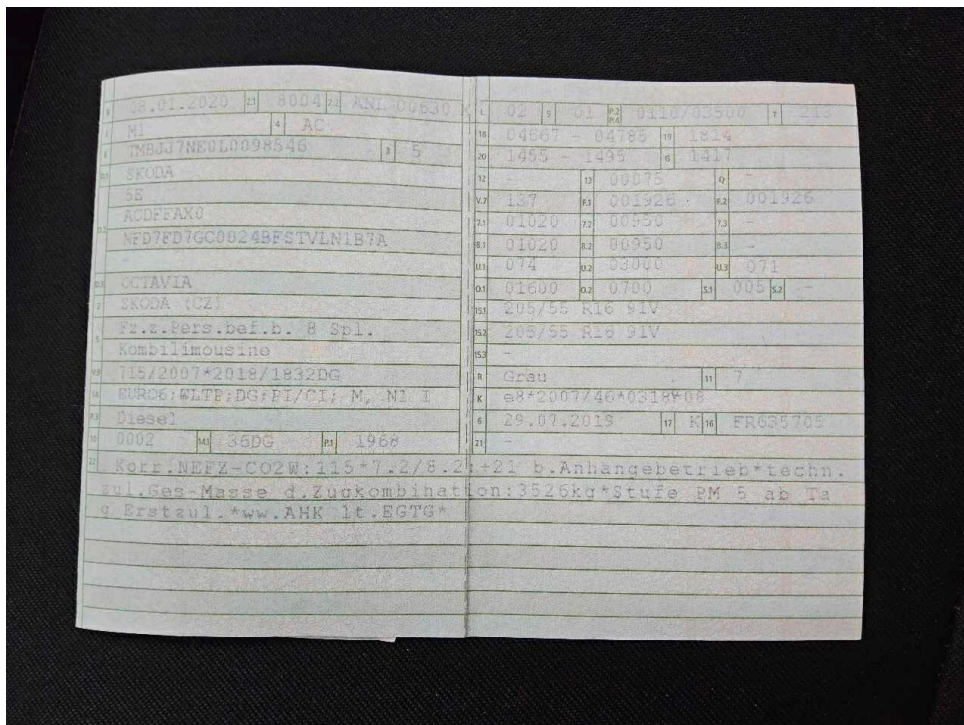 B 08.01.2020 2.1 8004 2.2 ANL 00630
J M1 4 AC
E TMBJJ7NE0L0098546 3 5
D.1 SKODA
5E
D.2 ACDFFAX0
NFD7FD7GC0024BFSTVLN1B7A
-
D.3 OCTAVIA
2 SKODA (CZ)
5 Fz.z.Pers.bef.b. 8 Spl.
Kombilimousine
V.9 715/2007*2018/1832DG
14 EURO6;WLTP;DG;PI/CI; M, N1 I
P.3 Diesel
10 0002 14.1 36DG P.1 1968
L 02 9 01 P.2 P.4 0110/03500 T 213
18 04667 - 04785 19 1814
20 1455 - 1495 G 1417
12 - 13 00075 Q -
V.7 137 F.1 001926 F.2 001926
7.1 01020 7.2 00950 7.3 -
8.1 01020 8.2 00950 8.3 -
U.1 074 U.2 03000 U.3 071
O.1 01600 O.2 0700 S.1 005 S.2 -
15.1 205/55 R16 91V
15.2 205/55 R16 91V
15.3 -
R Grau 11 7
K e8*2007/46*0318*08
6 29.07.2019 17 K 16 FR635705
21 -
22 Korr.NEFZ-CO2W:115*7.2/8.2:+21 b.Anhängebetrieb*techn.
zul.Ges-Masse d.Zugkombination:3526kg*Stufe PM 5 ab Ta
g Erstzul.*ww.AHK lt.EGTG*